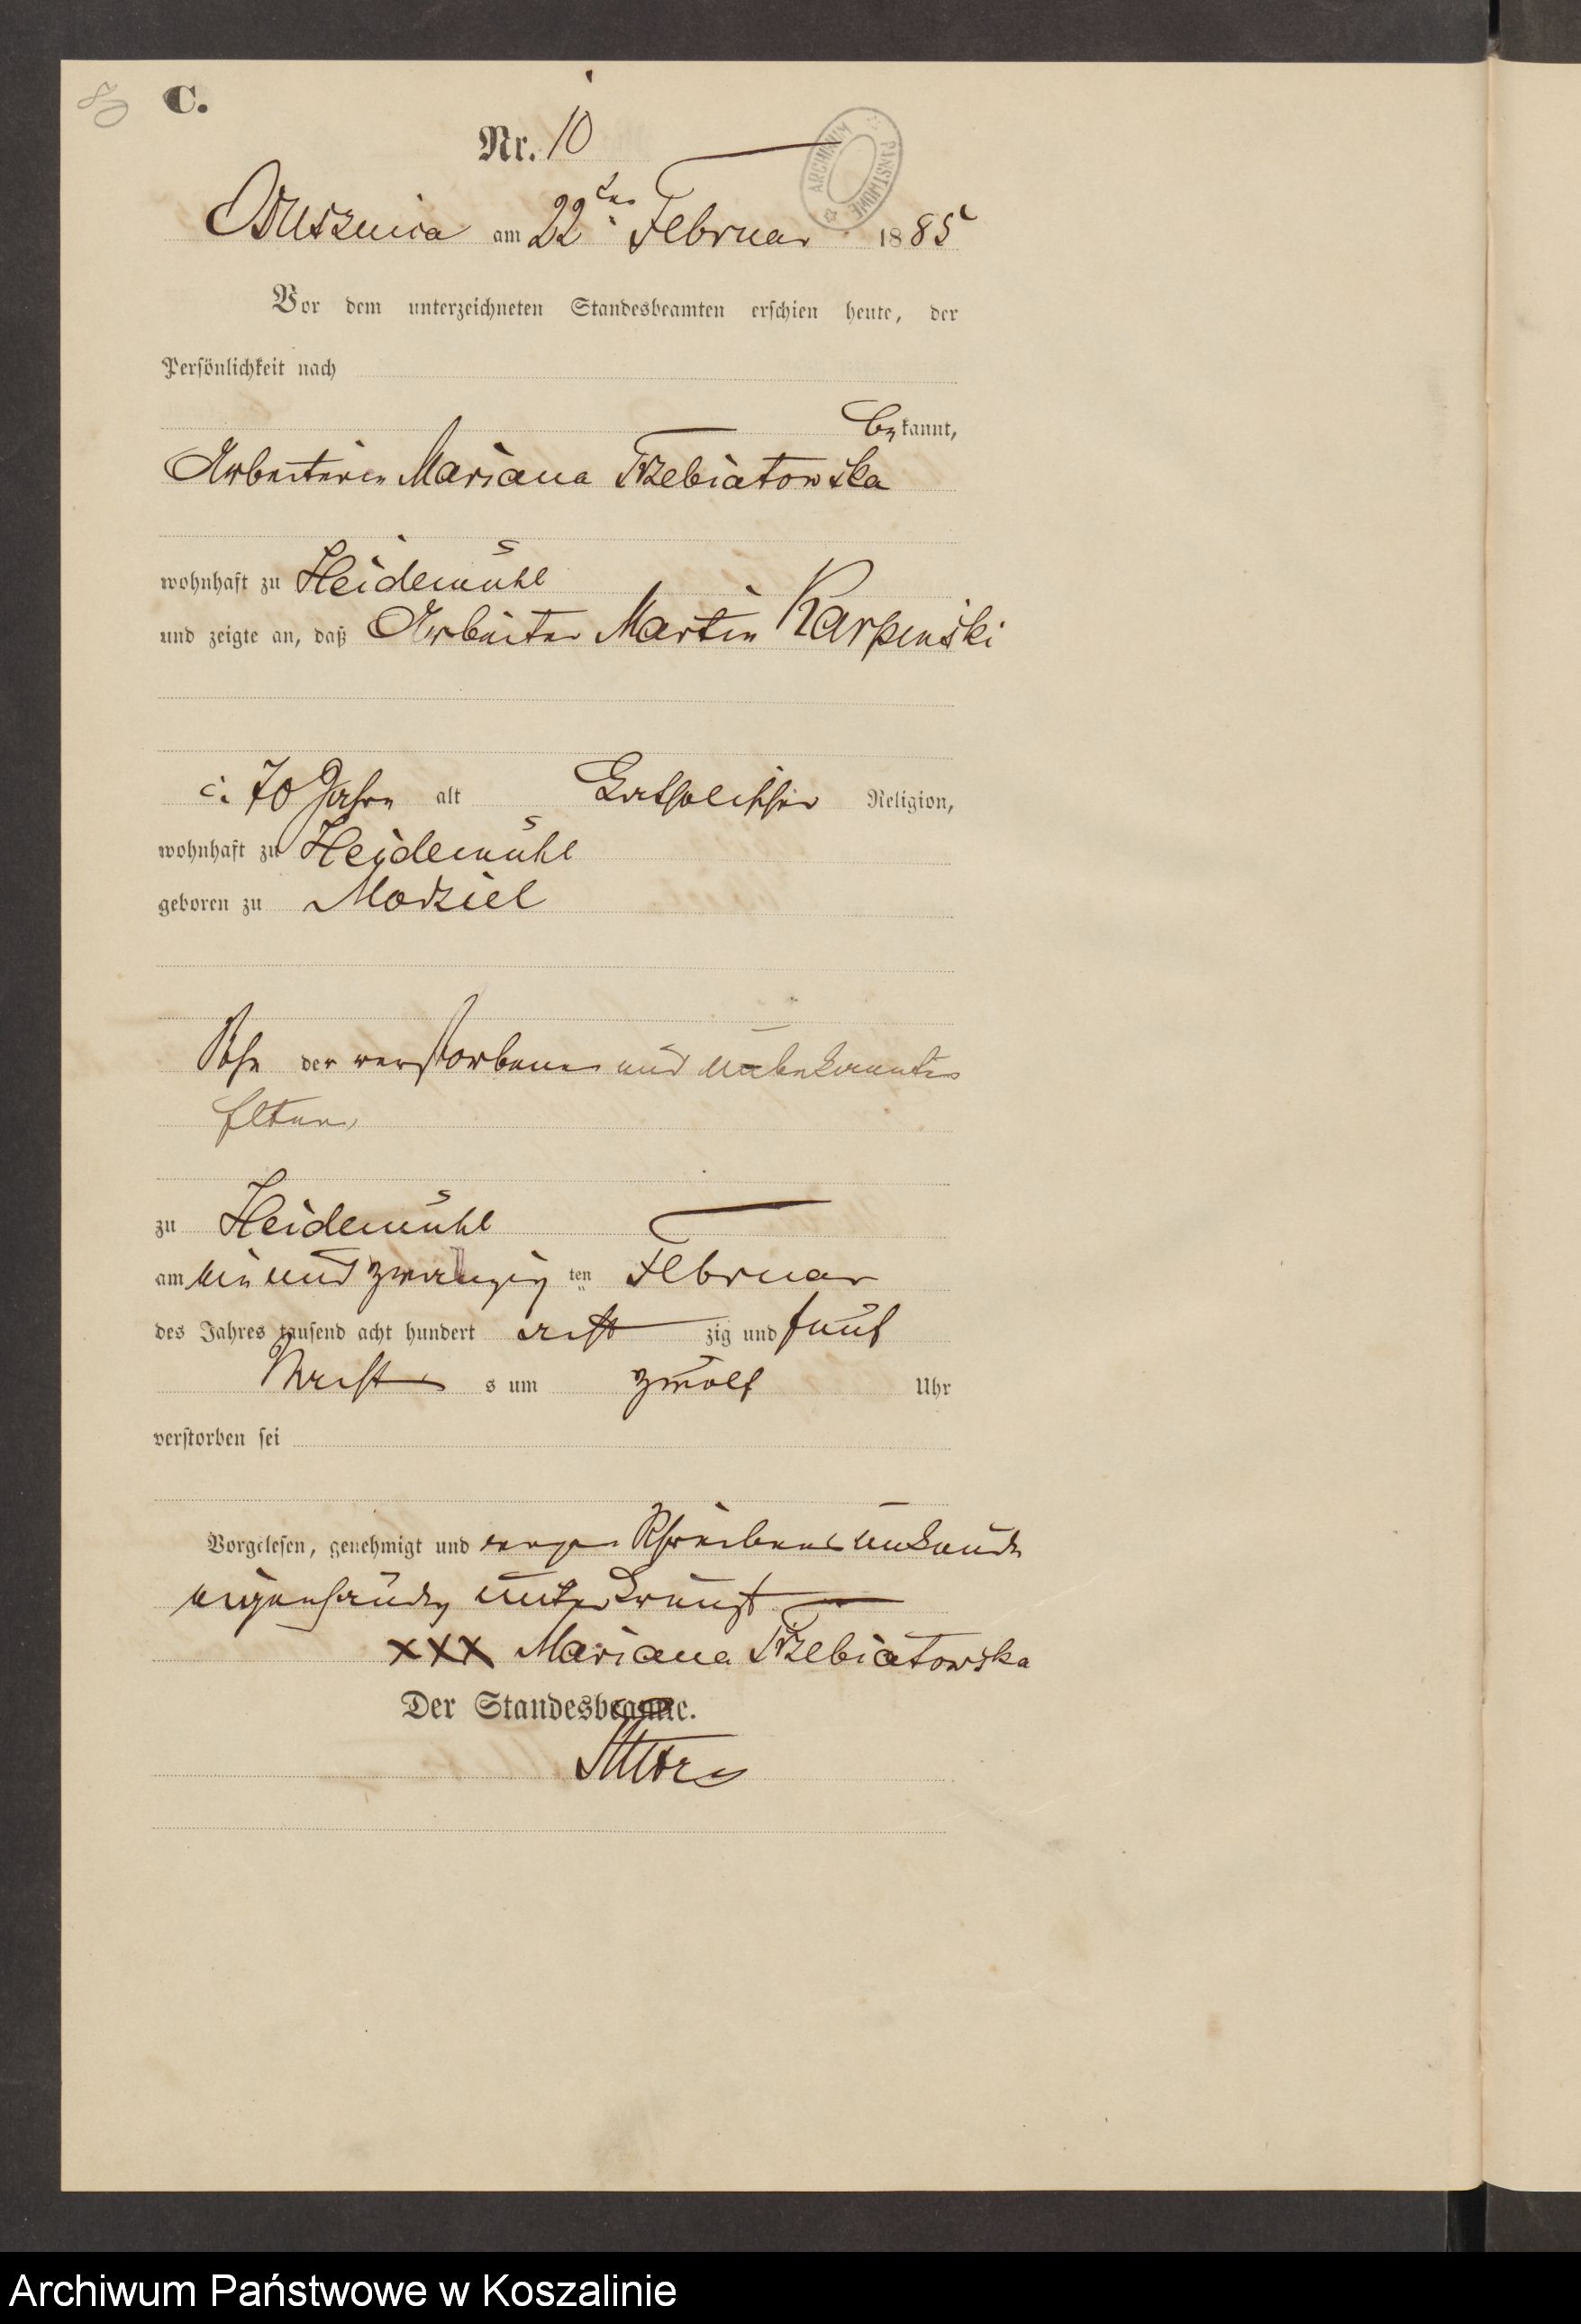 C.
Nr. 10
Osusznica am 22ten Februar 1885
Vor dem unterzeichneten Standesbeamten erschien heute, der
Persönlichkeit nach
bekannt,
Arbeiterin Mariana Trzebiatowska
wohnhaft zu Heidemühl
und zeigte an, daß Arbeiter Martin Karpinski
c. 70 Jahre alt Katholischer Religion,
wohnhaft zu Heidemühl
geboren zu Modziel
Sohn der verstorbenen und unbekannten
Eltern
zu Heidemühl
am ein und zwanzig ten Februar
des Jahres tausend acht hundert acht zig und fünf
Nachts um zwölf Uhr
verstorben sei
Vorgelesen, genehmigt und wegen Schreibensunkunde
eigenhändig unterkreuzt
XXX Mariana Trzebiatowska
Der Standesbeamte.
ARCHIWUM PAŃSTWOWE
Archiwum Państwowe w Koszalinie